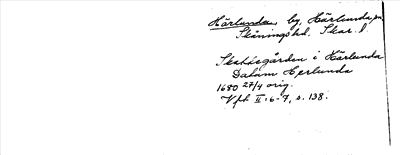 Härlunda, by, Härlunda sn,
Skånings hd. Skar. l.
Skattegården i Härlunda
Datum Herlunda
1680 27/4 orig.
Vft II: 6-7, s. 138.